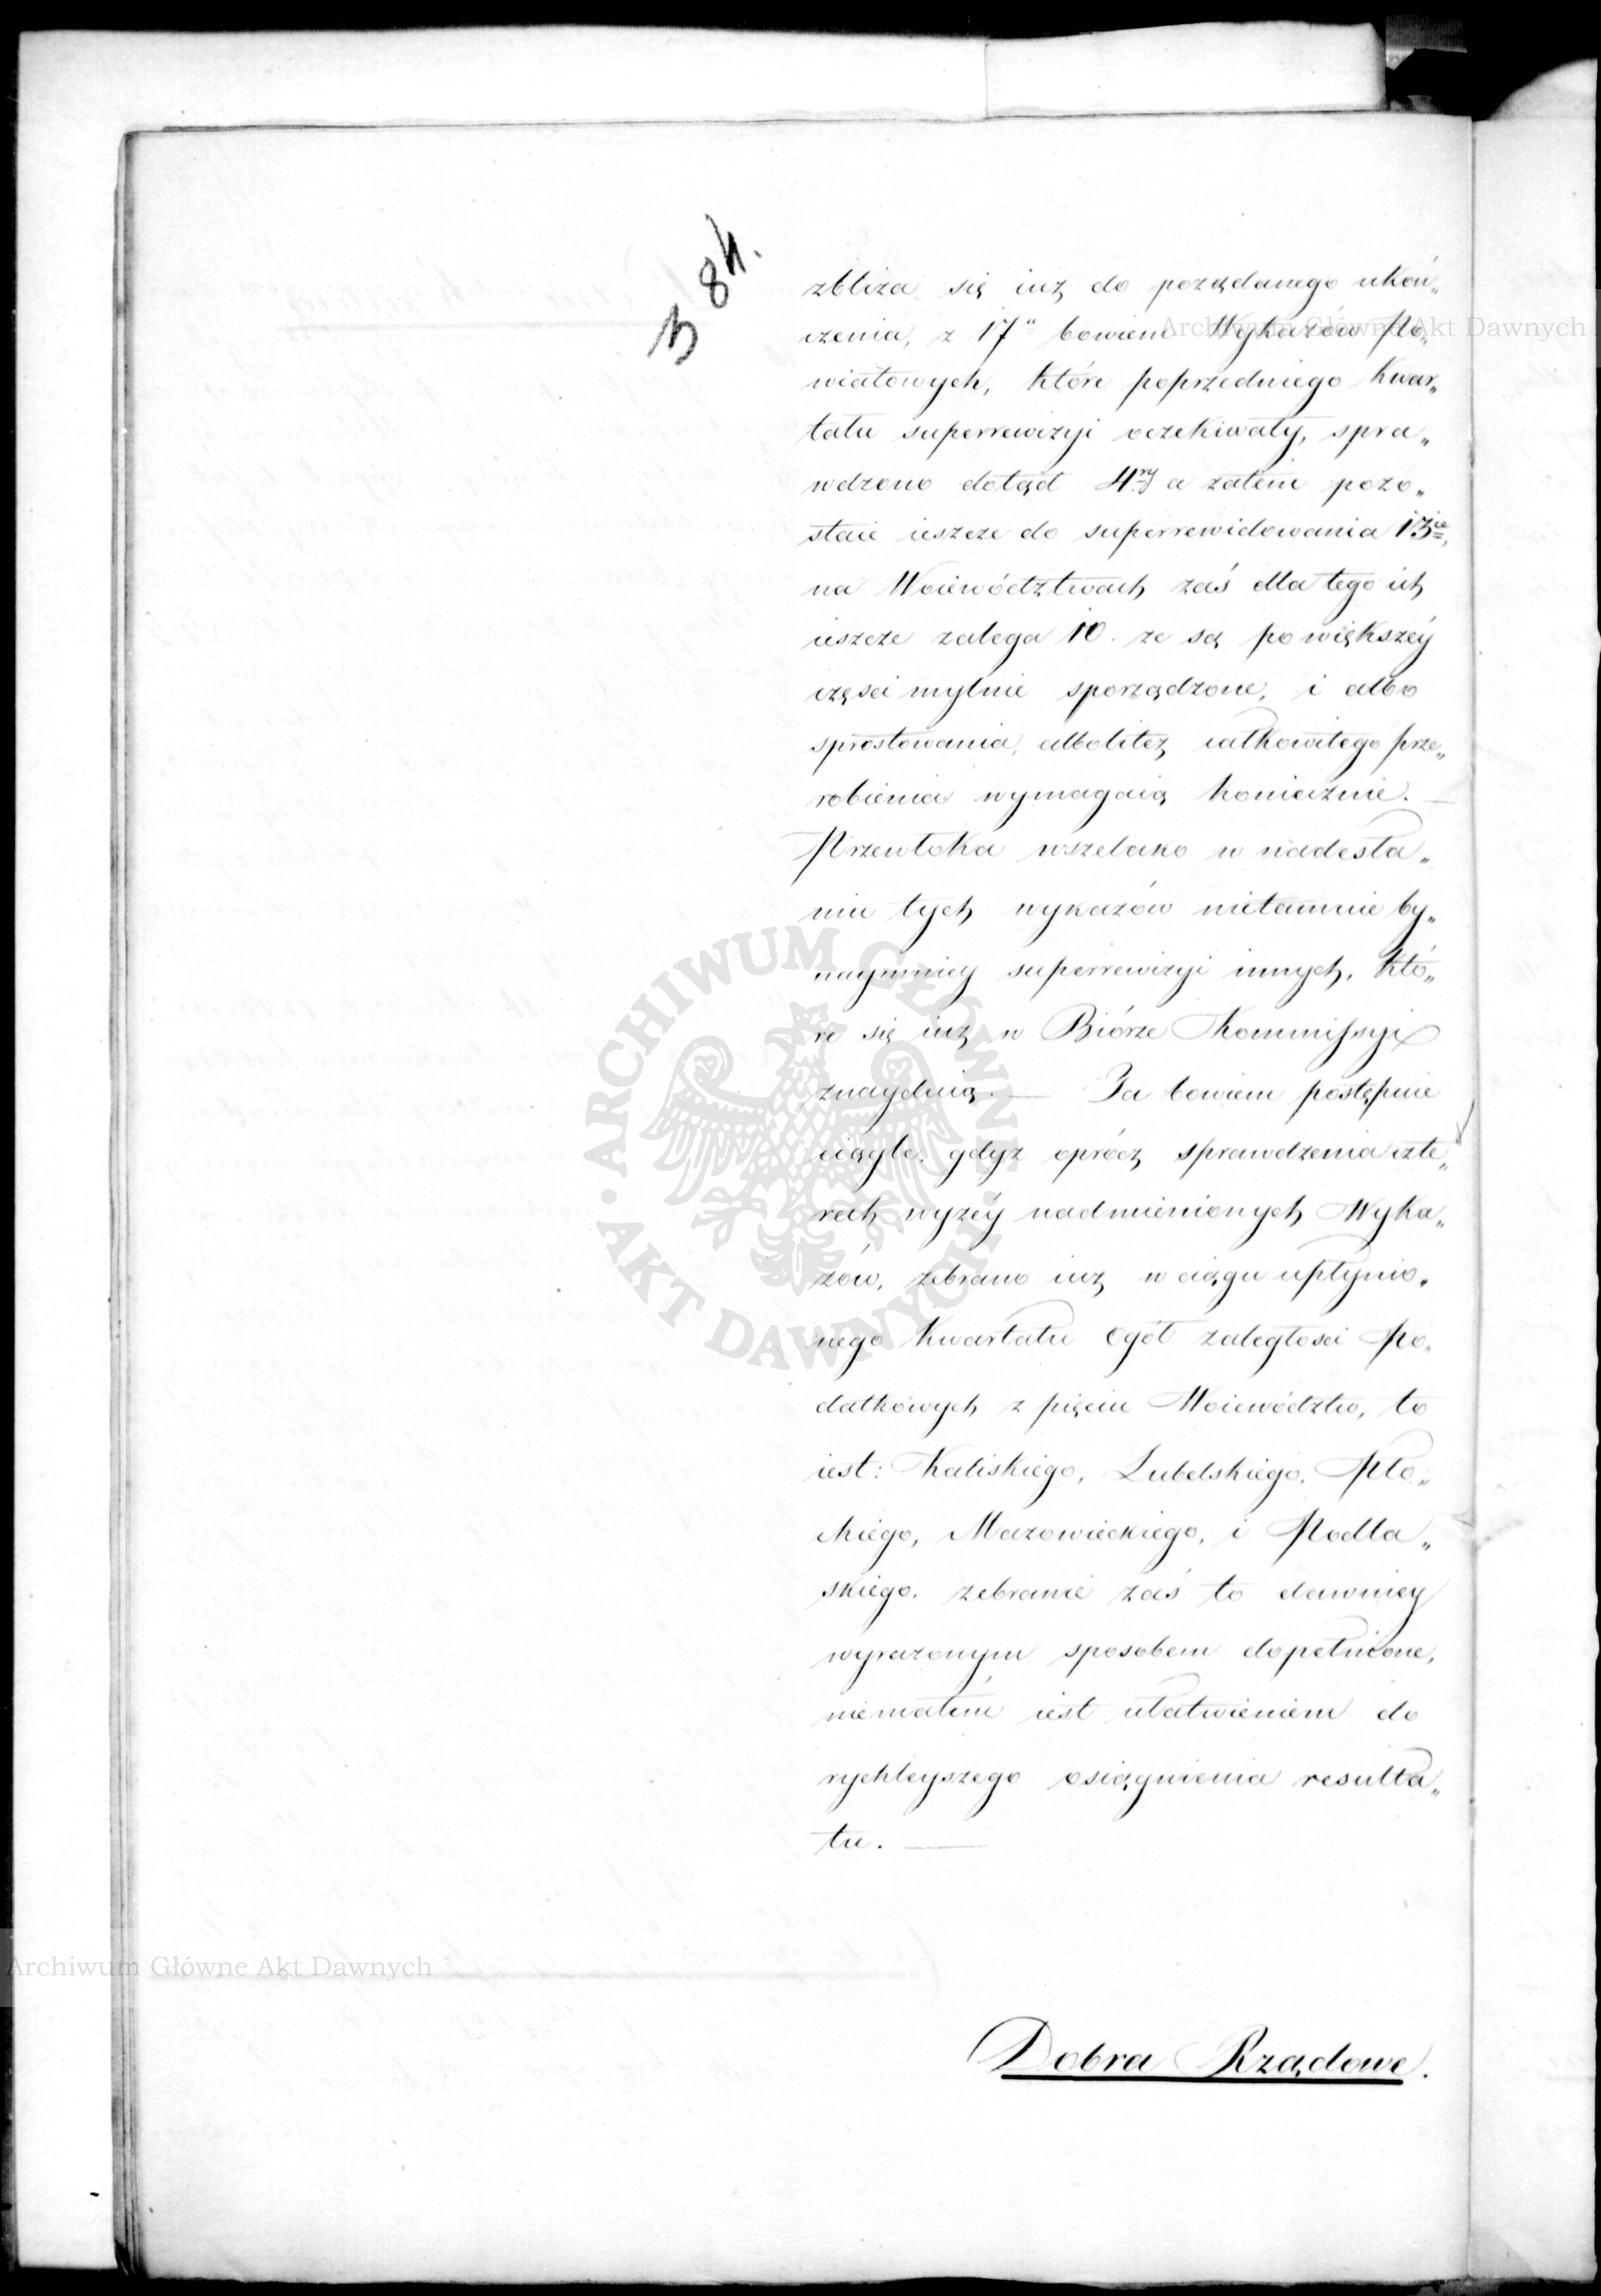 384.
zbliza się iuż do pożądanego ukoń„
czenia, z 17" bowiem Wykazów Po„
wiatowych, które poprzedniego Kwar„
tału superrewizyi oczekiwały, spra„
wdzono dotąd 4ry a zatém pozo„
staie ieszcze do superrewidowania 13ie,
na Woiewództwach zaś dla tego ich
ieszcze zalega 10. że są po większéy
części mylnie sporządzone, i albo
sprostowania, albolitéż całkowitego prze„
robienia wymagaią koniecznie. —
Przewłoka wszelako w nadesła„
niu tych wykazów nietamuie by„
naymniey superrewizyi innych, któ„
re się iuż w Biórze Kommissyi
znayduią. — Ta bowiem postępuie
ciągle, gdyż oprócz sprawdzenia czte„
rech wyżéy nadmienionych Wyka„
zów, zebrano iuż w ciągu upłynio„
nego Kwartału Ogół zaległości Po„
datkowych z pięciu Woiewództw, to
iest: Kaliskiego, Lubelskiego, Pło„
ckiego, Mazowieckiego, i Podla„
skiego. zebranie zaś to dawniey
wyrażonym sposobem dopełnione,
niemałém iest ułatwieniem do
rychleyszego osiągnienia resulta„
tu. —
Dobra Rządowe.
Archiwum Główne Akt Dawnych
Archiwum Główne Akt Dawnych
ARCHIWUM GŁÓWNE · AKT DAWNYCH ·